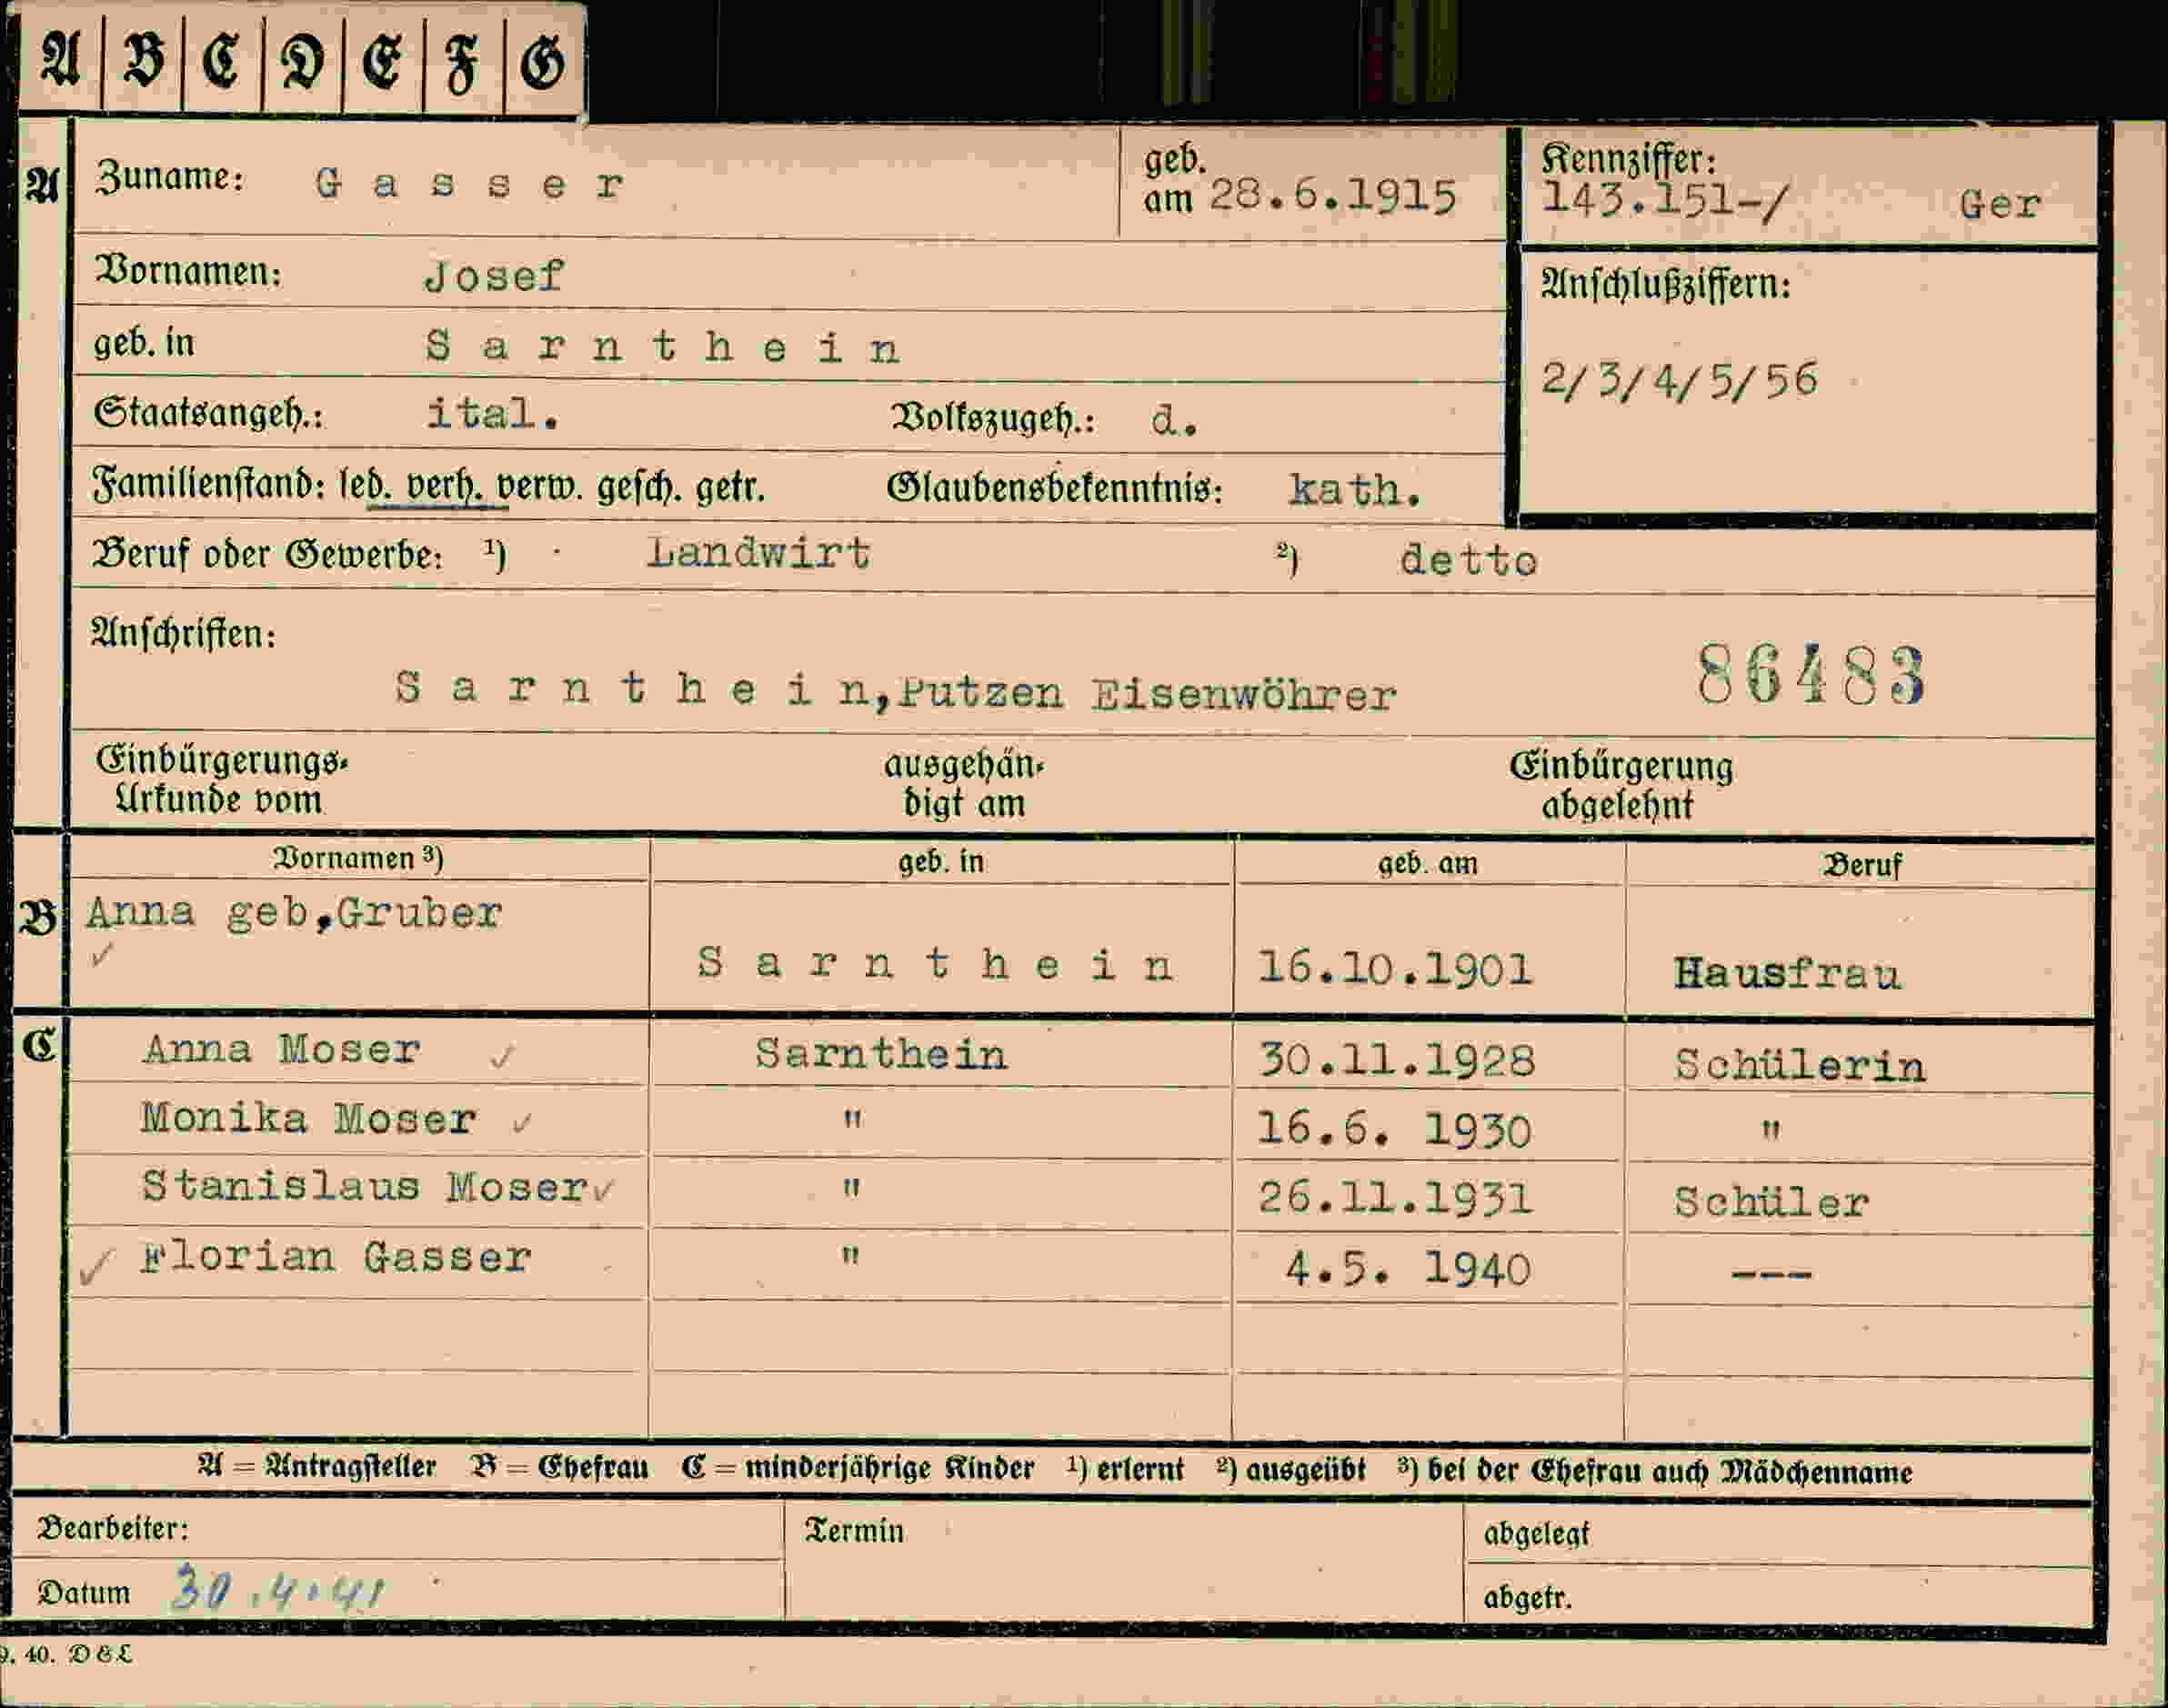 A B C D E F G
A Zuname: Gasser geb. am 28.6.1915 Kennziffer: 143.151-/ Ger
Vornamen: Josef Anschlußziffern:
geb. in Sarnthein 2/3/4/5/56
Staatsangeh.: ital. Volkszugeh.: d.
Familienstand: led. verh. verw. gesch. getr. Glaubensbekenntnis: kath.
Beruf oder Gewerbe: ¹) Landwirt ²) detto
Anschriften:
Sarnthein,Putzen Eisenwöhrer 86483
Einbürgerungs- ausgehän- Einbürgerung
Urkunde vom digt am abgelehnt
Vornamen ³) geb. in geb. am Beruf
B Anna geb,Gruber
✓ Sarnthein 16.10.1901 Hausfrau
C Anna Moser ✓ Sarnthein 30.11.1928 Schülerin
Monika Moser ✓ " 16.6. 1930 "
Stanislaus Moser ✓ " 26.11.1931 Schüler
✓ Florian Gasser " 4.5. 1940 ---
A = Antragsteller B = Ehefrau C = minderjährige Kinder ¹) erlernt ²) ausgeübt ³) bei der Ehefrau auch Mädchenname
Bearbeiter: Termin abgelegt
Datum 30.4.41 abgetr.
9. 40. D & L